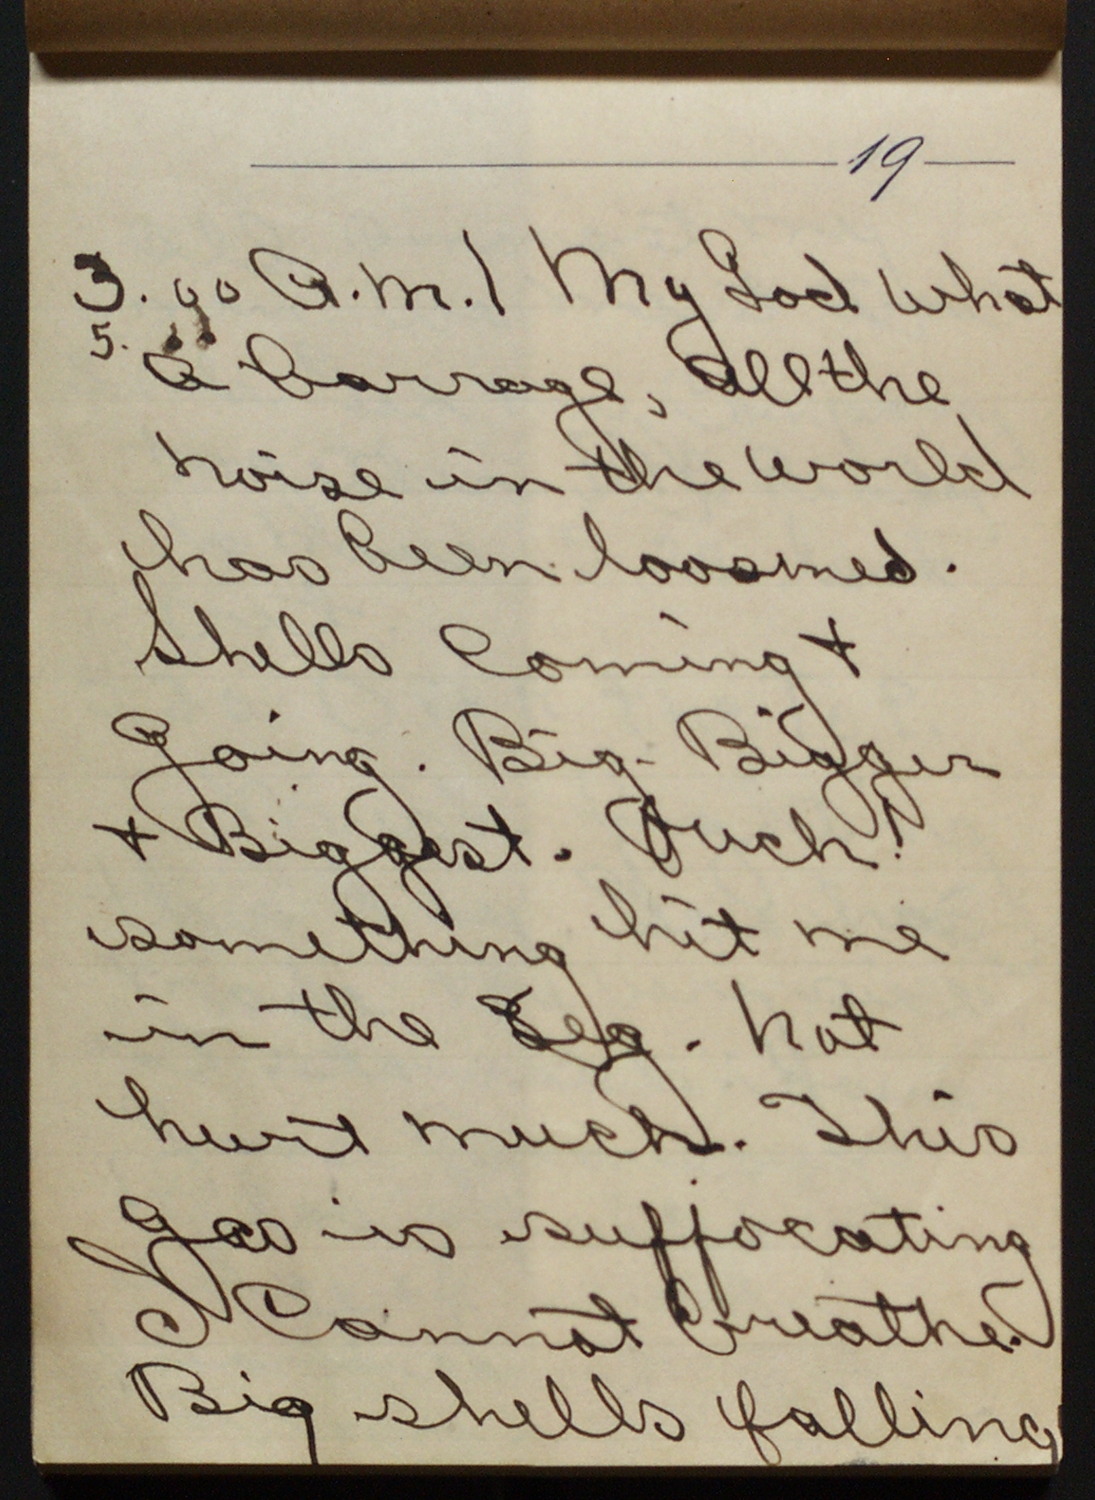 19
3.00 A.M.! My God what
5.
a barrage, all the
noise in the world
has been looosned.
Shells Coming +
Going. Big - Bigger
+ Biggest. Ouch!
something hit me
in the Leg. Not
hurt much. This
gas is suffocating
I Cannot breathe.
Big shells falling